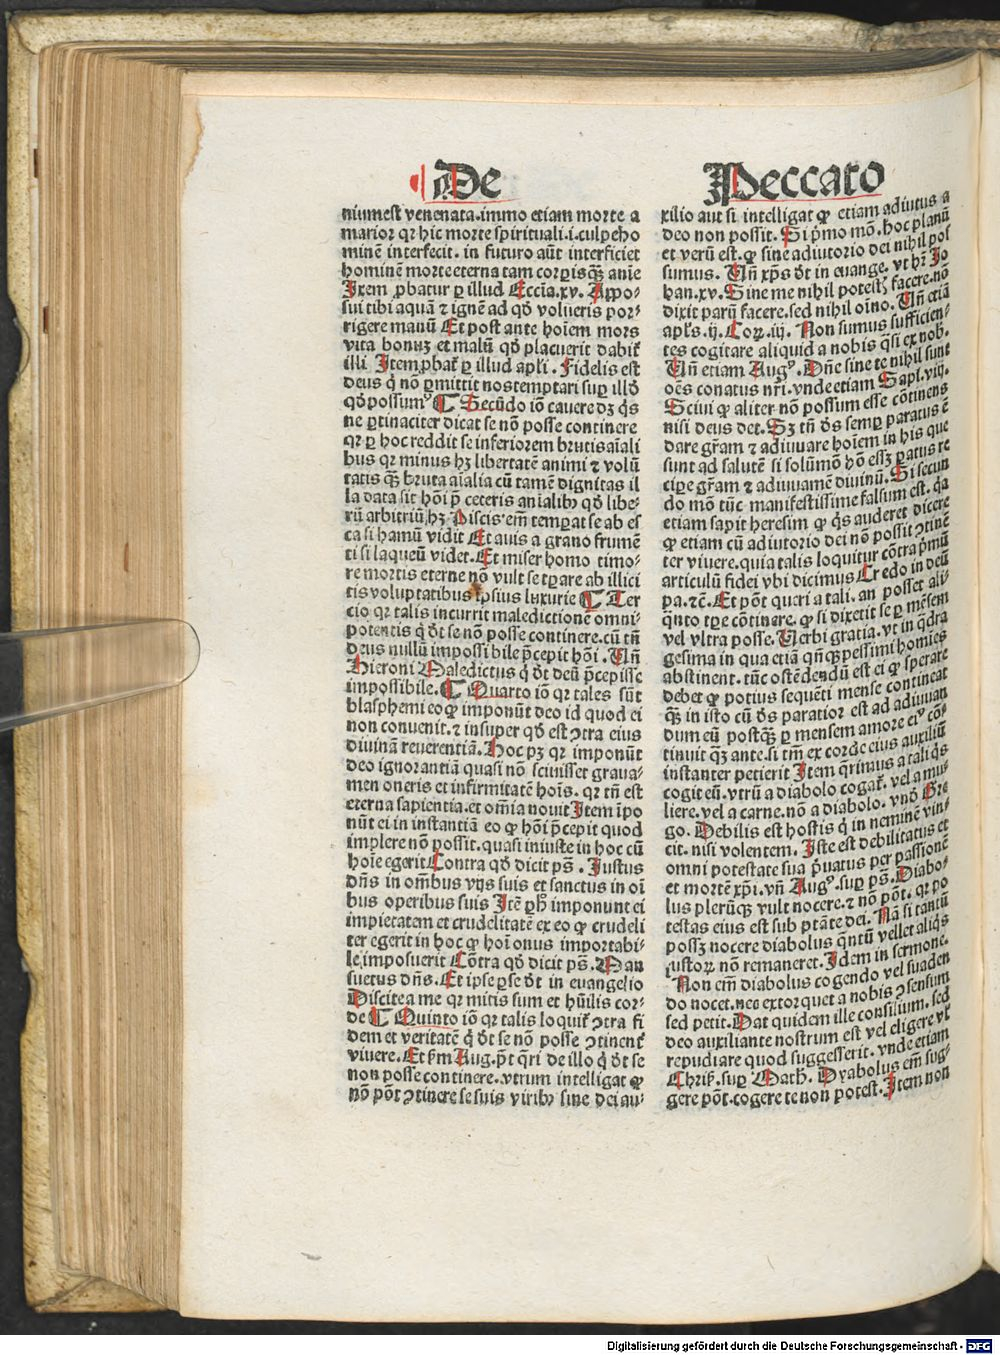 De Peccato
niumest venenata.immo etiam morte a
marior qr hic morte spirituali.i.culpe ho
minē interfecit. in futuro aūt interficiet
hominē morte eterna tam corpis qꝫ anie
Item ꝓbatur ꝑ illud Eccīa.xv. Appo⸗
sui tibi aquā ⁊ ignē ad qd̄ volueris por⸗
rigere manū Et post ante hoīem mors
vita bonuꝫ et malū qd̄ placuerit dabit᷑
illi. Item ꝓbat᷑ ꝑ illud apl̄i. Fidelis est
deus q̇ nō ꝑmittit nos temptari suꝑ illd̄
qd̄ possumꝰ ¶ Secūdo iō cauere dꝫ q̇s
ne ꝑtinaciter dicat se nō posse continere
qr ꝑ hoc reddit se inferiorem brutis aīali
bus qr minus hꝫ libertatē animi ⁊ volū
tatis qꝫ bruta aīalia cū tamē dignitas il
la data sit hōi p̄ ceteris aīalibꝰ qd̄ libe⸗
rū arbitriū hꝫ Piscis em̄ temꝑat se ab es
ca si hamū vidit Et auis a grano frumē
ti si laqueū videt. Et miser homo timo⸗
re mortis eterne nō vult se tꝑare ab illici
tis voluptatibus ipsius luxurie ¶ Ter
cio qr talis incurrit maledictionē omni⸗
potentis q̇ dt̄ se nō posse continere.cū tn̄
deus nullū impossibile p̄cepit hōi. Un̄
Hieroni Maledictus q̇ dt̄ deū p̄cepisse
impossibile. ¶ Quarto iō qr tales sūt
blasphemi eo ꝙ imponūt deo id quod ei
non conuenit. ⁊ insuper qd̄ est ꝯtra eius
diuinā reuerentiā. Hoc pꝫ qr imponūt
deo ignorantiā quasi nō sciuisset graua⸗
men oneris et infirmitatē hoīs. qr tn̄ est
eterna sapientia.et om̄ia nouit Item īpo
nūt ei in instantiā eo ꝙ hōi p̄cepit quod
implere nō possit. quasi iniuste in hoc cū
hoīe egerit Contra qd̄ dicit pS̄. Iustus
dn̄s in om̄bus vijs suis et sanctus in oī
bus operibus suis Itē ꝑ hͦ imponunt ei
impietatem et crudelitatē ex eo ꝙ crudeli
ter egerit in hoc ꝙ hoī onus importabi⸗
le imposuerit Cōtra qd̄ dicit pS̄. Man
suetus dn̄s. Et ipse ꝑ se dt̄ in euangelio
Discite a me qr mitis sum et hūilis cor⸗
de ¶ Quinto iō qr talis loquit᷑ ꝯtra fi
dem et veritatē q̇ dt̄ se nō posse ꝯtinent᷑
viuere. Et sm̄ Aug. pt̄ q̄ri de illo q̇ dt̄ se
non posse continere. vtrum intelligat ꝙ
nō pōt ꝯtinere se suis viribꝰ sine dei au⸗
xilio aut si intelligat ꝙ etiam adiutus a
deo non possit. Si p̄mo mō. hoc planū
et verū est. ꝙ sine adiutorio dei nihil pos
sumus. Un̄ xp̄s dt̄ in euange. vt hr̄ Jo
han.xv. Sine me nihil potestꝭ facere. nō
dixit parū facere. sed nihil oīno. Un̄ etiā
apl̄s.ij. Coꝝ.iij. Non sumus sufficien⸗
tes cogitare aliquid a nobis q̄si ex nob̄.
Un̄ etiam Augꝰ. Dn̄e sine te nihil sunt
oēs conatus nr̄i. vnde etiam Sapī.viij.
Sciui ꝙ aliter nō possum esse cōtinens
nisi deus det. Sꝫ tn̄ d̄s semꝑ paratus ē
dare gr̄am ⁊ adiuuare hoīem in his que
sunt ad salutē si solūmō hō essꝫ ꝑatus re
ciꝑe gr̄am ⁊ adiuuamē diuinū. Si secun
do mō tūc manifestissime falsum est. q̄a
etiam sapit heresim ꝙ q̇s auderet dicere
ꝙ etiam cū adiutorio dei nō possit ꝯtinē
ter viuere. quia talis loquitur cōtra p̄mū
articulū fidei vbi dicimus Credo in deū
pa.⁊c̄. Et pōt queri a tali. an posset ali⸗
q̄nto tꝑe cōtinere. ꝙ si dixerit se ꝑ mēsem
vel vltra posse. Verbi gratia. vt in q̄dra
gesima in qua etiā qn̄qꝫ pessimi homies
abstinent. tūc ostēdendū est ei ꝙ sperare
debet ꝙ potius sequēti mense contineat
qꝫ in isto cū d̄s paratior est ad adiuuan
dum eū postqꝫ ꝑ mensem amore eiꝰ cō⸗
tinuit qꝫ ante. si tm̄ ex corde eius auxiliū
instanter petierit Item q̄rimus a tali q̇s
cogit eū. vtrū a diabolo cogat᷑. vel a mu⸗
liere. vel a carne. nō a diabolo. vnd̄ Gre
go. Debilis est hostis q̇ in neminē vin⸗
cit. nisi volentem. Iste est debilitatus et
omni potestate sua p̄uatus per passionē
et mortē xp̄i. vn̄ Augꝰ. suꝑ pS̄. Diabo⸗
lus plerūqꝫ vult nocere. ⁊ nō pōt. qr po
testas eius est sub ptāte dei. Nā si tantū
possꝫ nocere diabolus q̄ntū vellet aliq̇s
iustoꝝ nō remaneret. Idem in sermone.
Non em̄ diabolus cogendo vel suaden
do nocet. nec extorquet a nobis ꝯsensum
sed petit. Dat quidem ille consilium. sed
deo auxiliante nostrum est vel eligere vl̄
repudiare quod suggesserit. vnde etiam
Chris̄. suꝑ Math̄. Dyabolus em̄ sug⸗
gere pōt. cogere te non potest. Item non
Digitalisierung gefördert durch die Deutsche Forschungsgemeinschaft - DFG